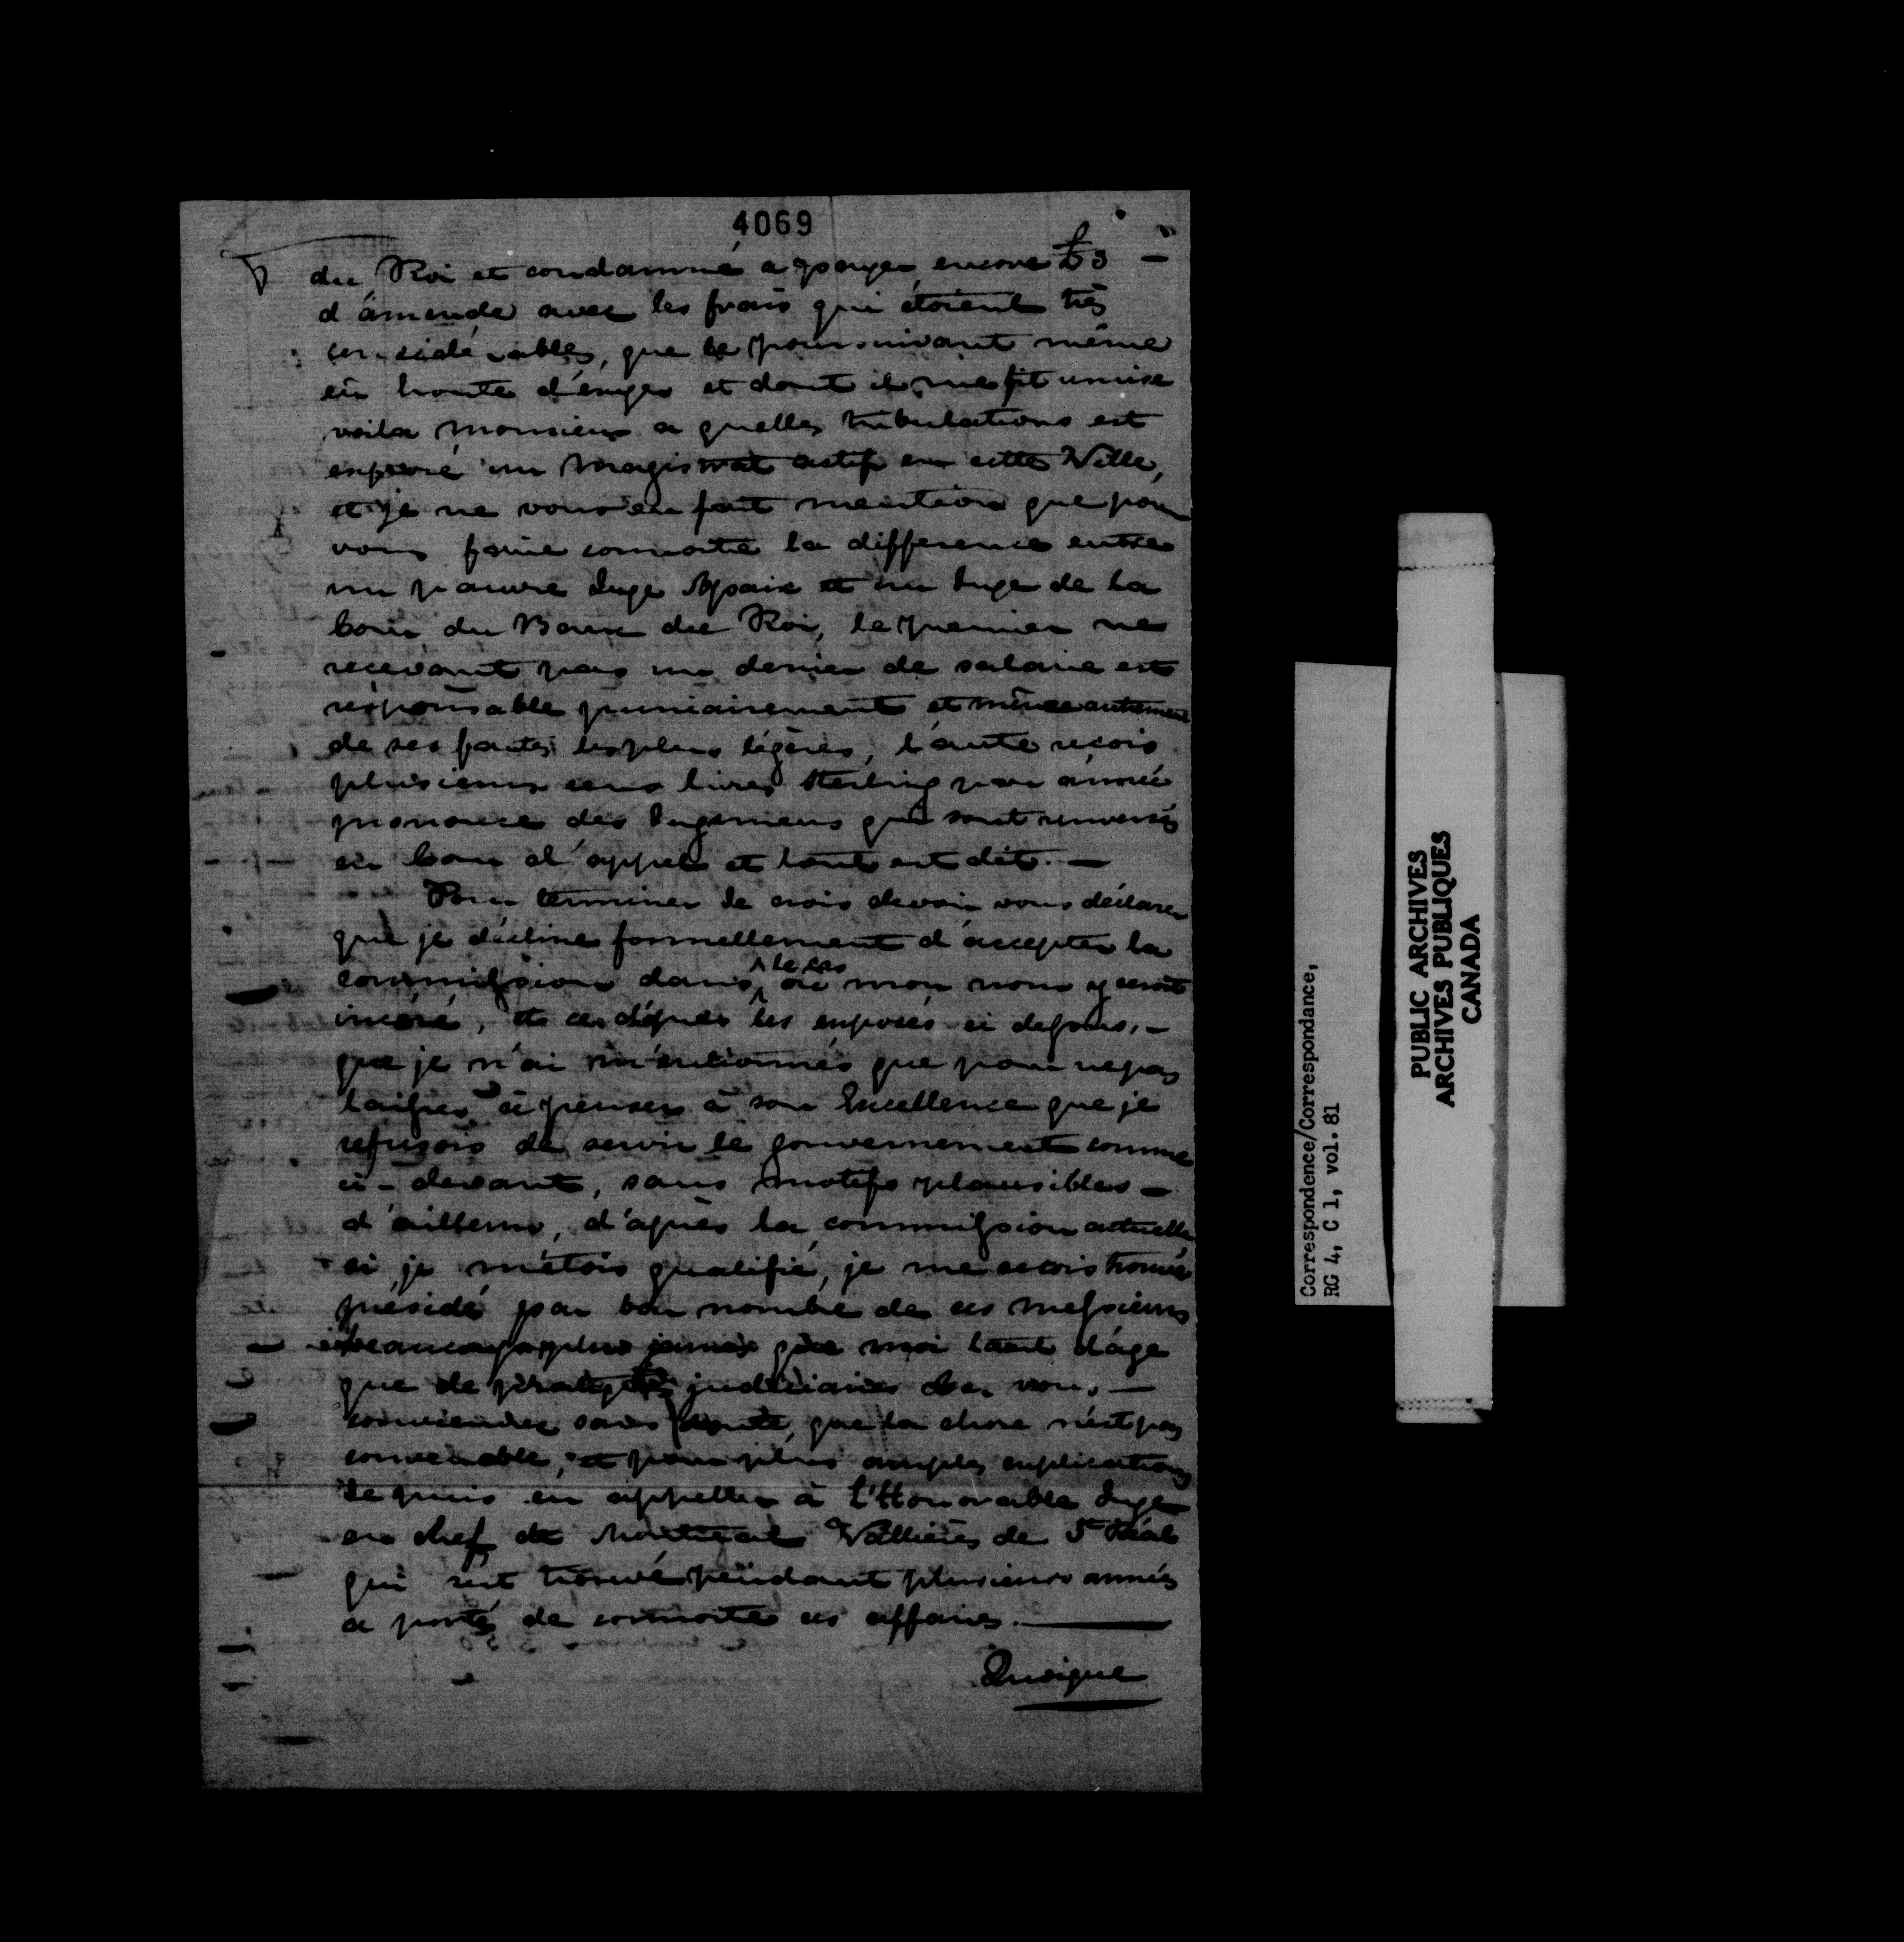 4069
du Roi et condamné a payer encore £3 —
d'amende avec les frais qui étoient très
considérables, que le poursuivant même
eu honte d'éxiger et dont il me fit remise
voila Monsieur a quelles tribulations est
exposé un Magistrat actif en cette Ville,
et je ne vous en fait mention que pour
vous faire connoitre la difference entre
un pauvre Juge Apaix et un Juge de la
Cour du Banc du Roi, le premier ne
recevant pas un denier de salaire est
résponsable puniairement et même autrement
de ses fautes les plus légères, l'autre reçois
plusieurs cens livres Sterling par année
prononce des Jugemens qui sont renversés
en Cour d'appel et tout est dit. —
Pour terminer Je crois devoir vous déclarer
que je décline formellement d'accepter la
commission dans le cas où mon nom y seroit
inséré, et ce d'après les exposés ci dessus, —
que je n'ai mentionnés que pour ne pas
laisser à penser à son Excellence que je
refusois de servir le gouvernement comme
ci-devant, sans motifs plausibles —
d'ailleurs, d'après la commission actuelle
si je m'étois qualifié, je me serois trouvé
présidé par bon nombre de ces messieurs
beaucoup plus jeunes que moi tant d'age
que de judiciaires vous —
conviendrez sans doute, que la chose n'est pas
convenable, et pour plus amples explications
Je puis en appeller à l'Honorable Juge
en chef de Montreal Vallières de St Réal
qui s'est trouvé pendant plusieurs années
a porté de connoitre ces affaires. —
Quoique
Correspondence/Correspondance,
RG 4, C 1, vol. 81
PUBLIC ARCHIVES
ARCHIVES PUBLIQUES
CANADA